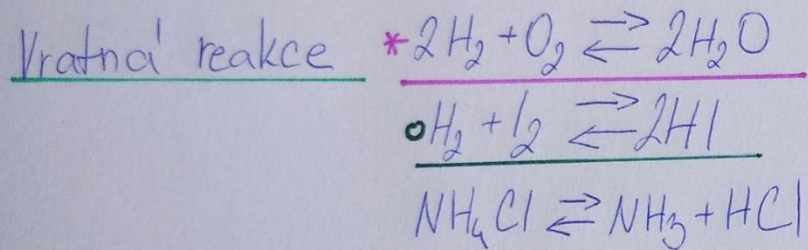 Vratná reakce *2H₂ + O₂ ⇄ 2H₂O
H₂ + I₂ ⇄ 2HI
NH₄Cl ⇄ NH₃ + HCl